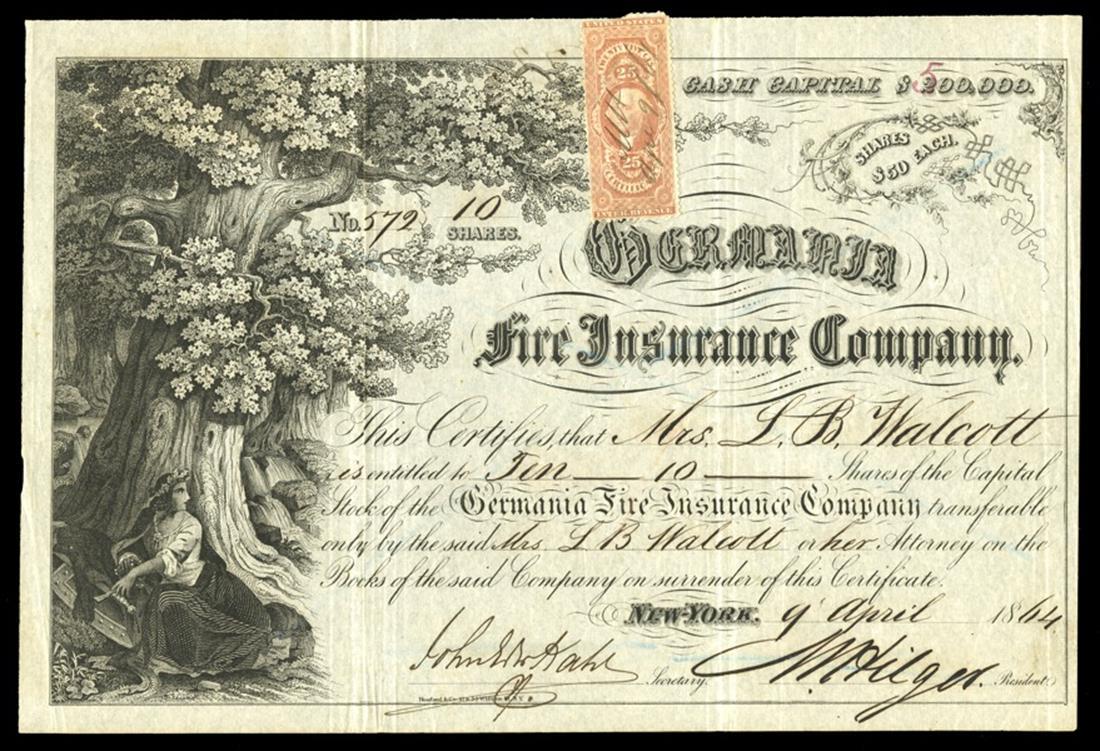 UNITED STATES
TWENTY FIVE CENTS
25
25
CERTIFICATE
INTER. REVENUE
CASH CAPITAL $ 5200,000.
SHARES
$50 EACH.
No. 572 10
SHARES.
GERMANIA
Fire Insurance Company.
This Certifies, that Mrs. L. B. Walcott
is entitled to Ten 10 Shares of the Capital
Stock of the Germania Fire Insurance Company transferable
only by the said Mrs L B Walcott or her Attorney on the
Books of the said Company on surrender of this Certificate.
NEW-YORK. 9 April 1864
Secretary.
President